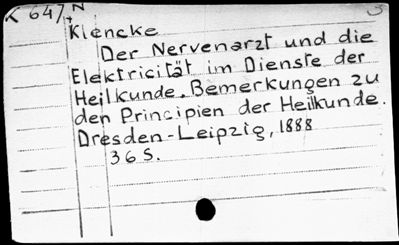 K 647, N
3
Klencke
Der Nervenarzt und die
Elektricität im Dienste der
Heilkunde. Bemerkungen zu
den Principien der Heilkunde.
Dresden-Leipzig, 1888
36 S.